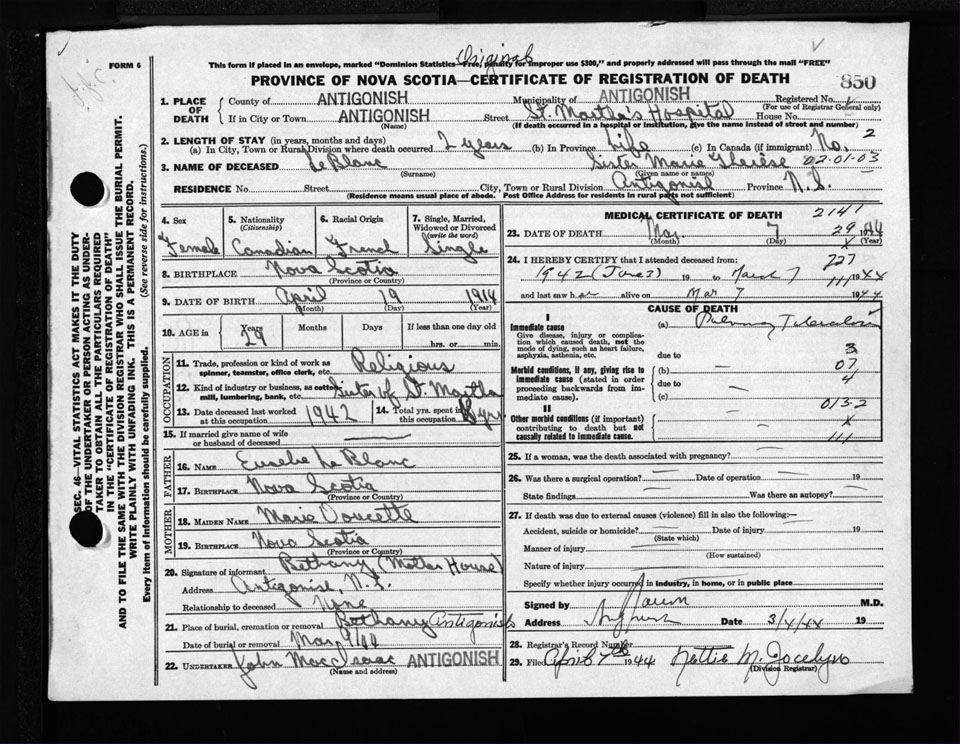 Original
FORM 6
This form if placed in an envelope, marked "Dominion Statistics—Free, penalty for improper use $300," and properly addressed will pass through the mail "FREE"
PROVINCE OF NOVA SCOTIA—CERTIFICATE OF REGISTRATION OF DEATH
850
1. PLACE OF DEATH
County of ANTIGONISH Municipality of ANTIGONISH Registered No.
(For use of Registrar General only)
If in City or Town ANTIGONISH Street St. Martha's Hospital House No.
(Name) (If death occurred in a hospital or institution, give the name instead of street and number)
2. LENGTH OF STAY (in years, months and days)
(a) In City, Town or Rural Division where death occurred 2 years (b) In Province Life (c) In Canada (if immigrant) No. 2
3. NAME OF DECEASED Le Blanc Sister Marie Therèse 02-01-03
(Surname) (Given name or names)
RESIDENCE No. Street City, Town or Rural Division Antigonish Province N.S.
(Residence means usual place of abode. Post Office Address for residents in rural parts not sufficient)
4. Sex Female
5. Nationality (Citizenship) Canadian
6. Racial Origin French
7. Single, Married, Widowed or Divorced (write the word) Single
8. BIRTHPLACE Nova Scotia
(Province or Country)
9. DATE OF BIRTH April 19 1914
(Month) (Day) (Year)
10. AGE in Years Months Days If less than one day old
29 hrs. or min.
OCCUPATION
11. Trade, profession or kind of work as spinner, teamster, office clerk, etc. Religious
12. Kind of industry or business, as cotton mill, lumbering, bank, etc. Sister of St. Martha
13. Date deceased last worked at this occupation 1942
14. Total yrs. spent in this occupation 8 yrs
15. If married give name of wife or husband of deceased —
FATHER
16. NAME Eusebe Le Blanc
17. BIRTHPLACE Nova Scotia
(Province or Country)
MOTHER
18. MAIDEN NAME Marie Doucette
19. BIRTHPLACE Nova Scotia
(Province or Country)
20. Signature of informant Bethany (Mother House)
Address Antigonish, N.S.
Relationship to deceased None
21. Place of burial, cremation or removal Bethany Antigonish
Date of burial or removal Mar 9/44
22. UNDERTAKER John MacIsaac ANTIGONISH
(Name and address)
MEDICAL CERTIFICATE OF DEATH 2141
23. DATE OF DEATH Mar. 7 29 1944
(Month) (Day) (Year)
24. I HEREBY CERTIFY that I attended deceased from: 727
1942 (June 3) 19 to March 7 19
and last saw her alive on Mar 7 1944
CAUSE OF DEATH
I
Immediate cause
Give disease, injury or complication which caused death, not the mode of dying, such as heart failure, asphyxia, asthenia, etc.
(a) Pulmonary Tuberculosis
due to 3
Morbid conditions, if any, giving rise to immediate cause (stated in order proceeding backwards from immediate cause).
(b) — 07
due to 4
(c) —
013-2
II
Other morbid conditions (if important) contributing to death but not causally related to immediate cause.
25. If a woman, was the death associated with pregnancy? —
26. Was there a surgical operation? — Date of operation — 19
State findings Was there an autopsy?
27. If death was due to external causes (violence) fill in also the following:—
Accident, suicide or homicide? Date of injury 19
(State which)
Manner of injury
(How sustained)
Nature of injury
Specify whether injury occurred in industry, in home, or in public place
Signed by M.D.
Address Date 19
28. Registrar's Record Number
29. Filed April 7th 1944 Nettie M. Jocelyn
(Division Registrar)
SEC. 46—VITAL STATISTICS ACT MAKES IT THE DUTY
OF THE UNDERTAKER OR PERSON ACTING AS UNDER-
TAKER TO OBTAIN ALL THE PARTICULARS REQUIRED
IN THE "CERTIFICATE OF REGISTRATION OF DEATH"
AND TO FILE THE SAME WITH THE DIVISION REGISTRAR WHO SHALL ISSUE THE BURIAL PERMIT.
WRITE PLAINLY WITH UNFADING INK. THIS IS A PERMANENT RECORD.
Every item of information should be carefully supplied. (See reverse side for instructions.)